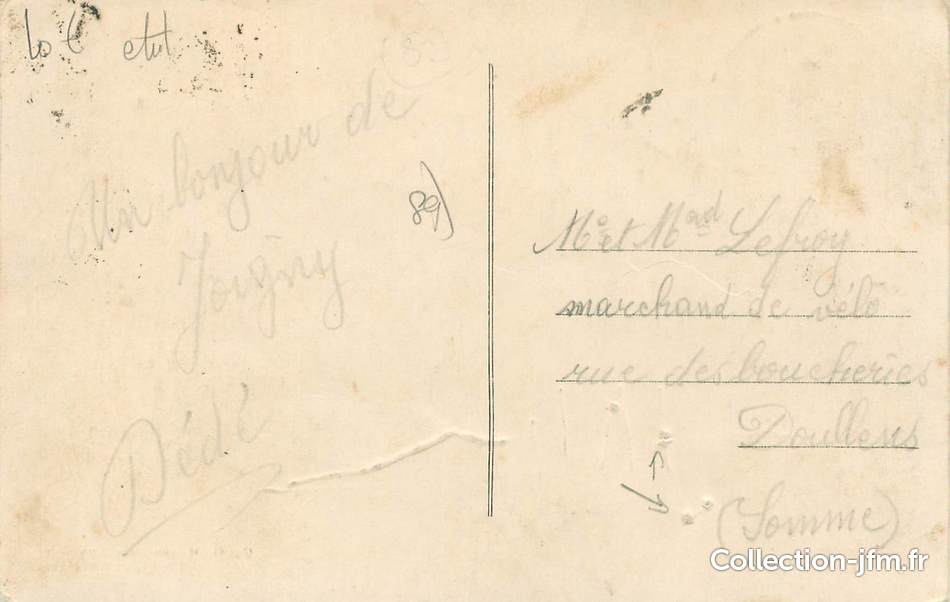 Un bonjour de
Joigny
Dédé
89
Mr et Mad Lefroy
marchand de vélo
rue des boucheries
Doullens
(Somme)
Collection-jfm.fr